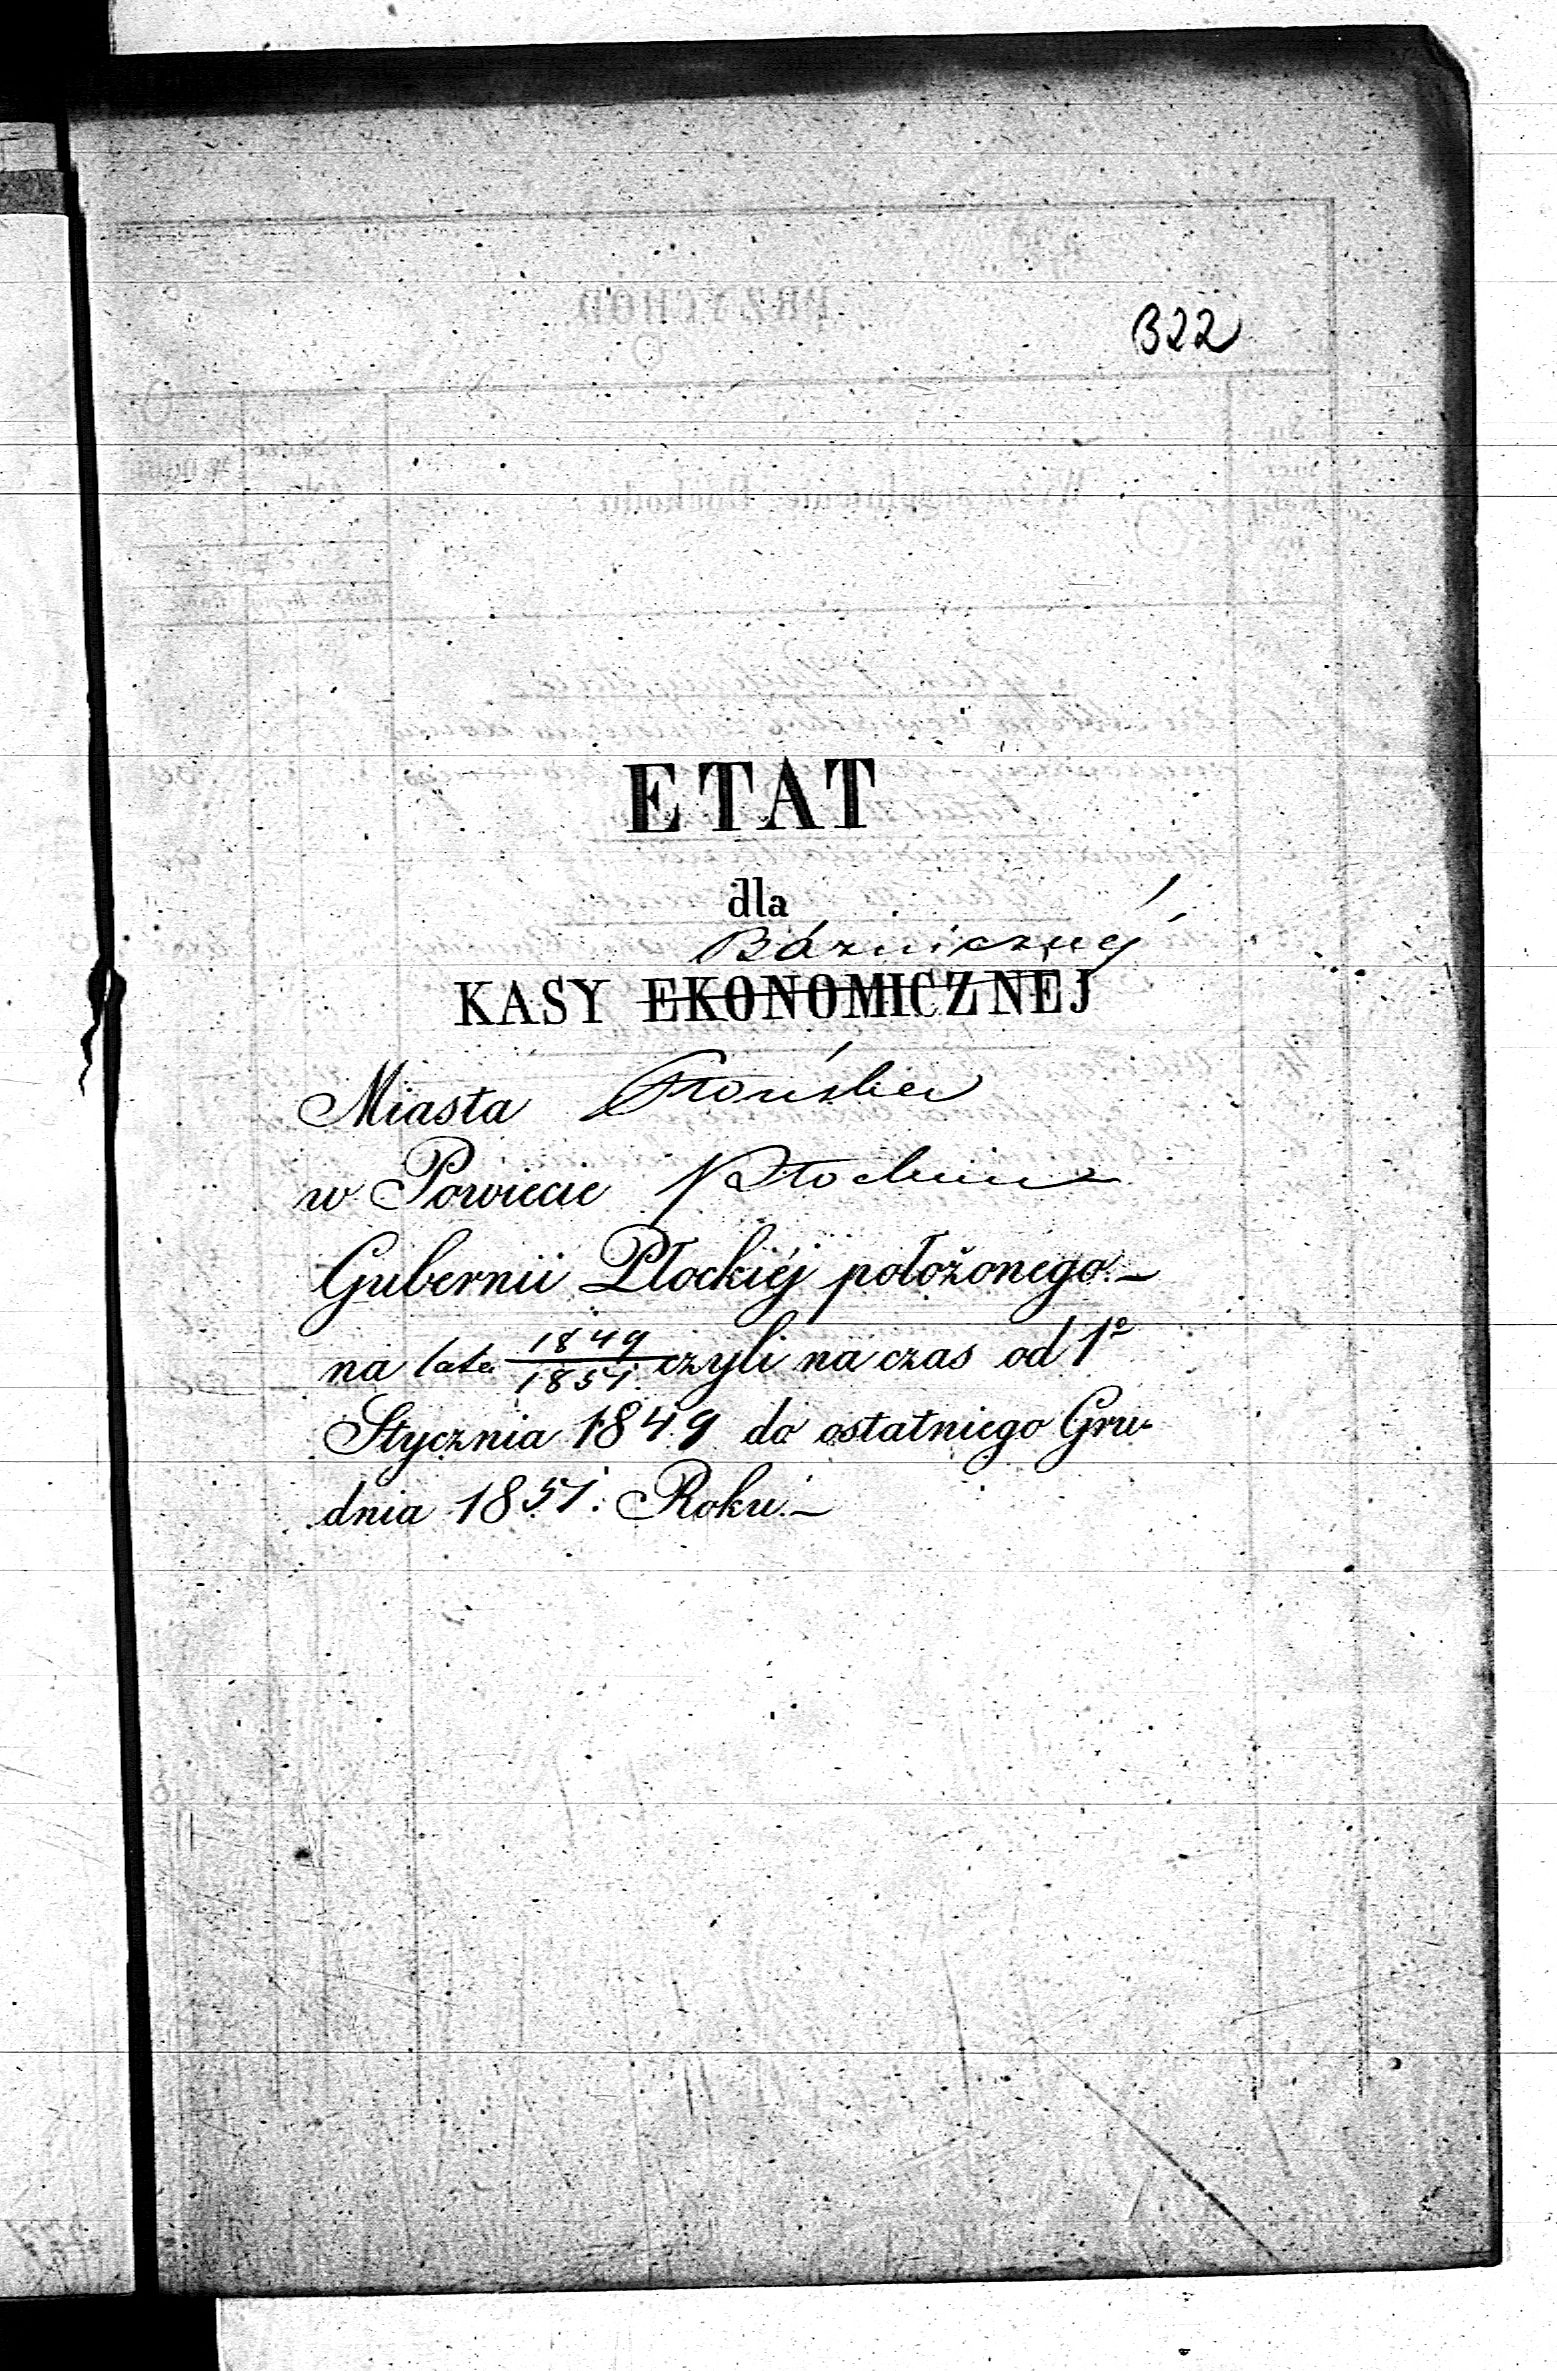 322
ETAT
dla
Bóżnicznéj
KASY EKONOMICZNEJ
Miasta Płońska
w Powiecie Płockim
Gubernii Płockiéj położonego.–
na lata 1849/1851. czyli na czas od 1º
Stycznia 1849 do ostatniego Gru-
dnia 1851. Roku.–